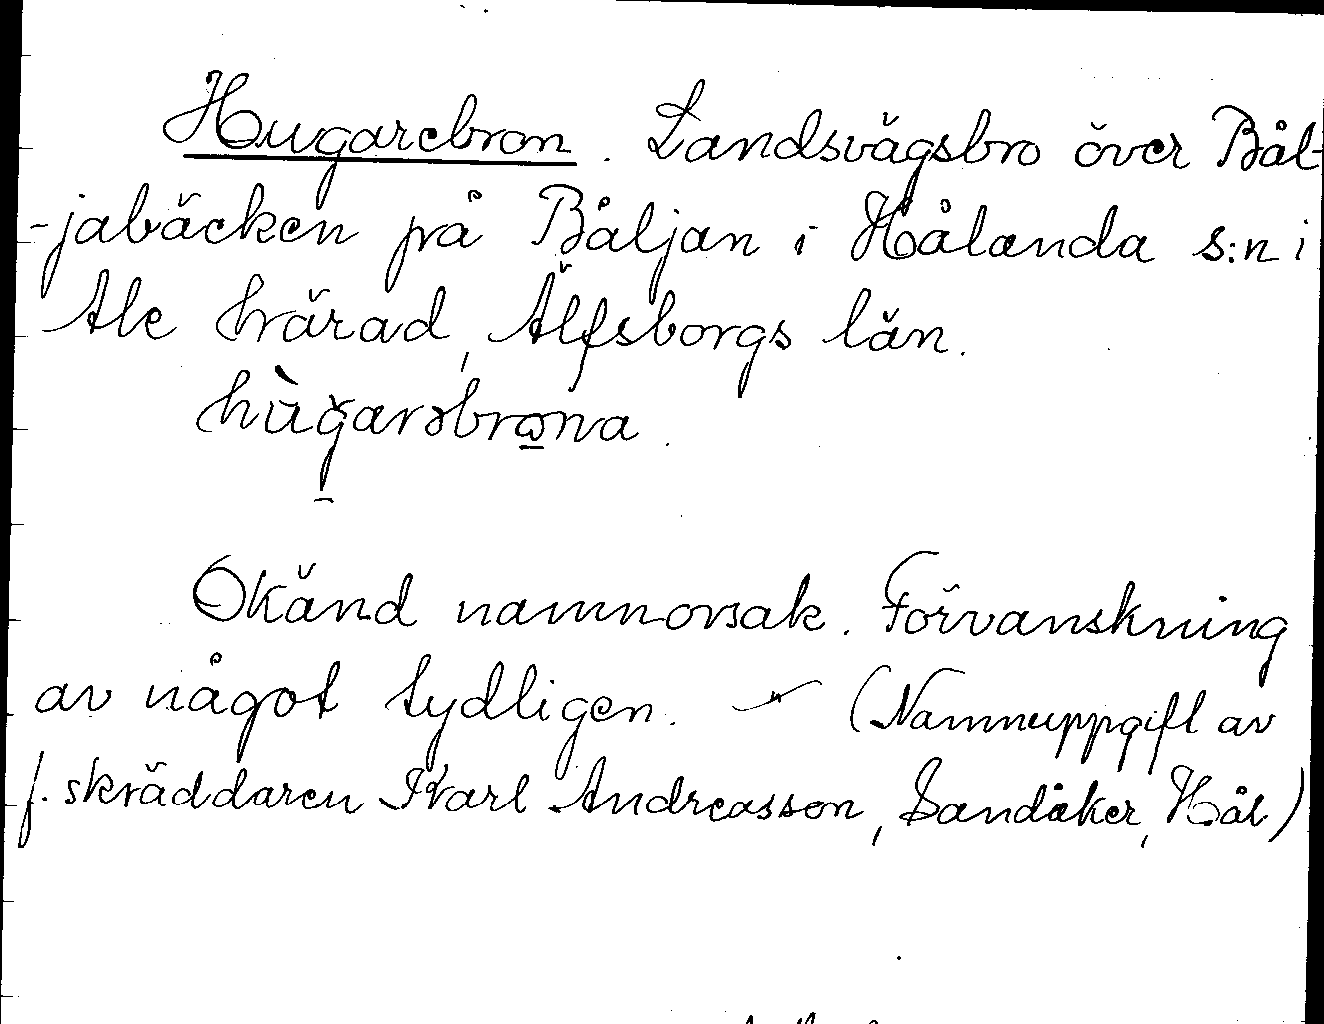 Hugarebron. Landsvägsbro över Bål-
-jabäcken på Båljan i Hålanda s:n i
Ale härad, Älfsborgs län.
hùğarəbrω̲na.
Okänd namnorsak. Förvanskning
av något tydligen. (Namnuppgift av
f. skräddaren Karl Andreasson, Sandåker, Hål)